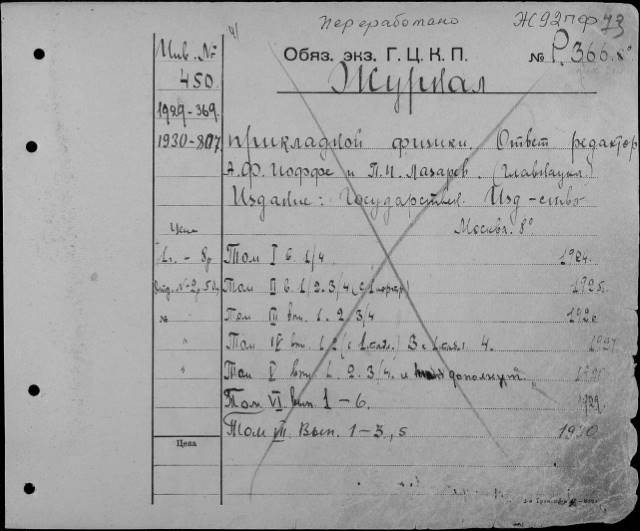 Переработано Ж92пф 73
Инв. № Обяз. экз. Г.Ц.К.П. № Р.366
450 Журнал
1929-369.
1930-807 прикладной физики. Ответ редактор
А.Ф. Иоффе и П.П. Лазарев. (Главнаука)
Издание: Государствен. Изд-ство
Москва. 8°
Цена
1 - 8 р Том I в. 1/4 1924.
Том II в. 1/2. 3/4 1925.
Том III вып. 1. 2 3/4
" Том IV вып. 1. 2 3 4.
" Том V вып. 1. 2. 3/4. и дополнит.
Том VI вып 1-6. 1929.
Том VII. Вып. 1-3, 5 1930
Цена